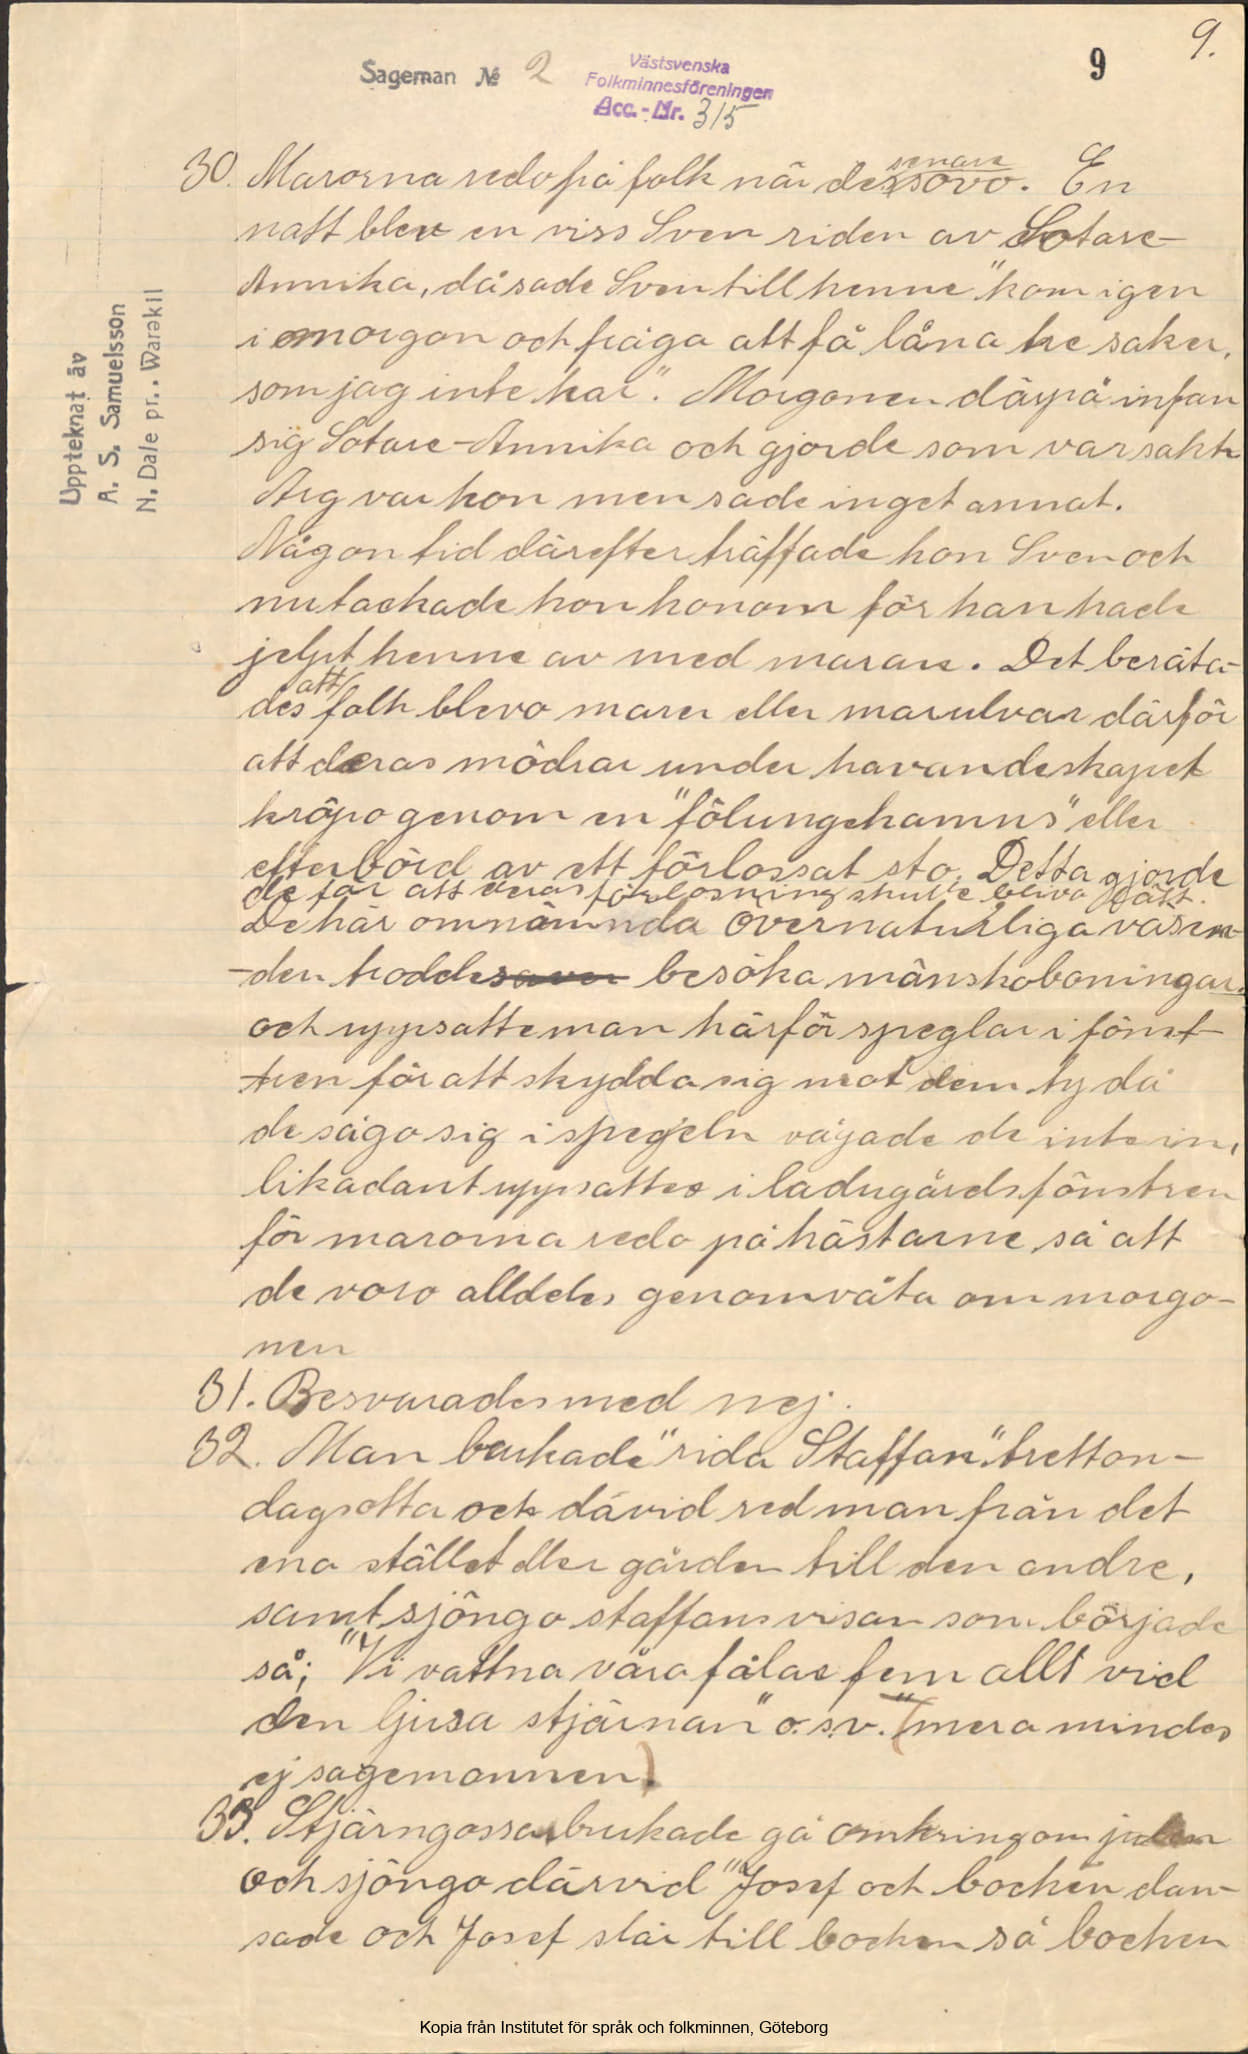 9.
9
Sageman № 2
Västsvenska
Folkminnesföreningen
Acc.-Nr. 315
Uppteknat av
A. S. Samuelsson
N. Dale pr. Warekil
30. Marorna redo på folk när de sovo. En
natt blev en viss Sven riden av Sotare-
Annika, då sade Sven till henne "kom igen
i morgon och fråga att få låna tre saker,
som jag inte har". Morgonen därpå infan
sig Sotare-Annika och gjorde som var sakt
Arg var hon men sade inget annat.
Någon tid därefter träffade hon Sven och
nu tackade hon honom för han hade
jelpt henne av med maran. Det beräta-
des att folk blevo maror eller marulvar därför
att deras mödrar under havandeskapet
kröpo genom en "fölungehamns" eller
efterbörd av ett förlossat sto. Detta gjorde
de för att deras förlosning skulle bliva lätt.
De här omnämnda övernaturliga väsen-
-den troddes besöka mänskoboningar
och uppsatte man härför speglar i fönst-
tren för att skydda sig mot dem ty då
de sågo sig i spegeln vågade de inte in,
likadant uppsattes i ladugårdsfönstren
för marorna redo på hästarne så att
de voro alldeles genomväta om morgo-
nen
31. Besvarades med nej.
32. Man brukade "rida Staffan" tretton-
dagsotta och dävid red man från det
ena stället eller gården till den andre,
samt sjöngo staffansvisan som började
så; "Vi vattna våra fålar fem allt vid
den ljusa stjärnan" o.s.v." (mera mindes
ej sagemannen)
33. Stjärngossar brukade gå omkring om julen
och sjöngo därvid "Josef och bocken dan-
sade och Josef slår till bocken så bocken
Kopia från Institutet för språk och folkminnen, Göteborg